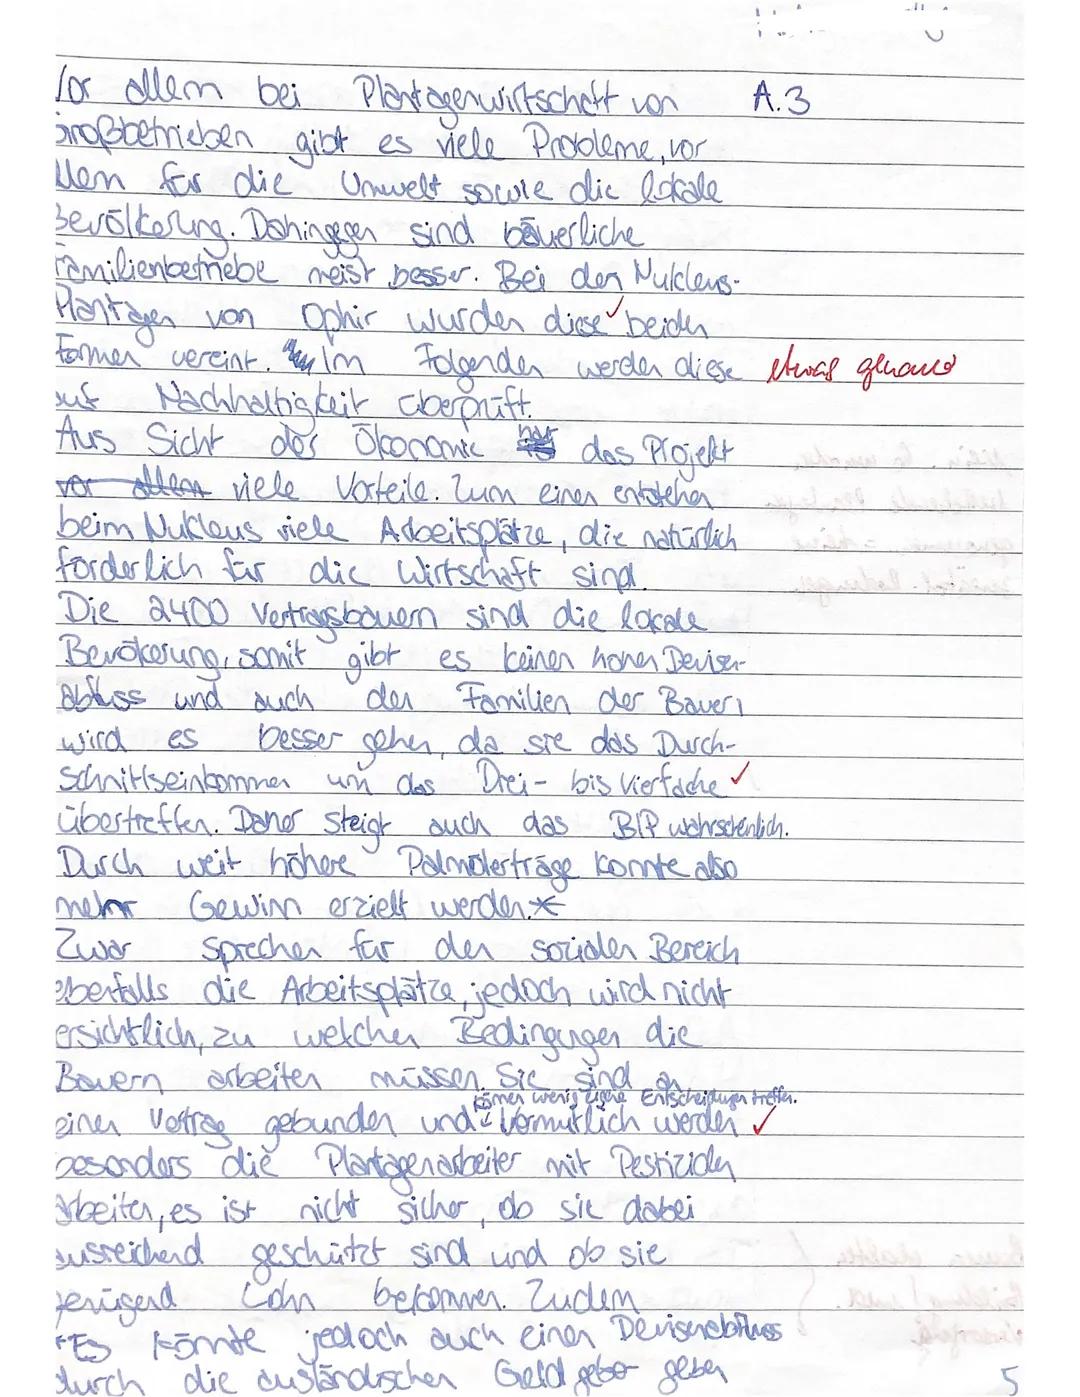 Vor allem bei Plantagenwirtschaft von A.3
Großbetrieben gibt es viele Probleme, vor
allem für die Umwelt sowie die lokale
Bevölkerung. Dahingegen sind bäuerliche
Familienbetriebe meist besser. Bei den Nukleus-
Plantagen von Ophir wurden diese beiden
Formen vereint. Im Folgenden werden diese etwas genauer
auf Nachhaltigkeit überprüft.
Aus Sicht der Ökonomie hat das Projekt
vor allem viele Vorteile. Zum einen entstehen
beim Nukleus viele Arbeitsplätze, die natürlich
förderlich für die Wirtschaft sind.
Die 2400 Vertragsbauern sind die lokale
Bevökerung, somit gibt es keinen hohen Devisen-
abfluss und auch den Familien der Bauern
wird es besser gehen, da sie das Durch-
schnittseinkommen um das Drei- bis Vierfache
übertreffen. Daher steigt auch das BIP wahrscheinlich.
Durch weit höhere Palmölerträge konnte also
mehr Gewinn erzielt werden.*
Zwar sprechen für den sozialen Bereich
ebenfalls die Arbeitsplätze, jedoch wird nicht
ersichtlich, zu welchen Bedingungen die
Bauern arbeiten müssen. Sie sind an
können wenig eigene Entscheidungen treffen.
einen Vertrag gebunden und Vermutlich werden
besonders die Plantagenarbeiter mit Pestiziden
arbeiten, es ist nicht sicher, ob sie dabei
ausreichend geschützt sind und ob sie
genügend Lohn bekommen. Zudem
*Es könnte jedoch auch einen Devisenabfluss
durch die ausländischen Geldgeber geben
5